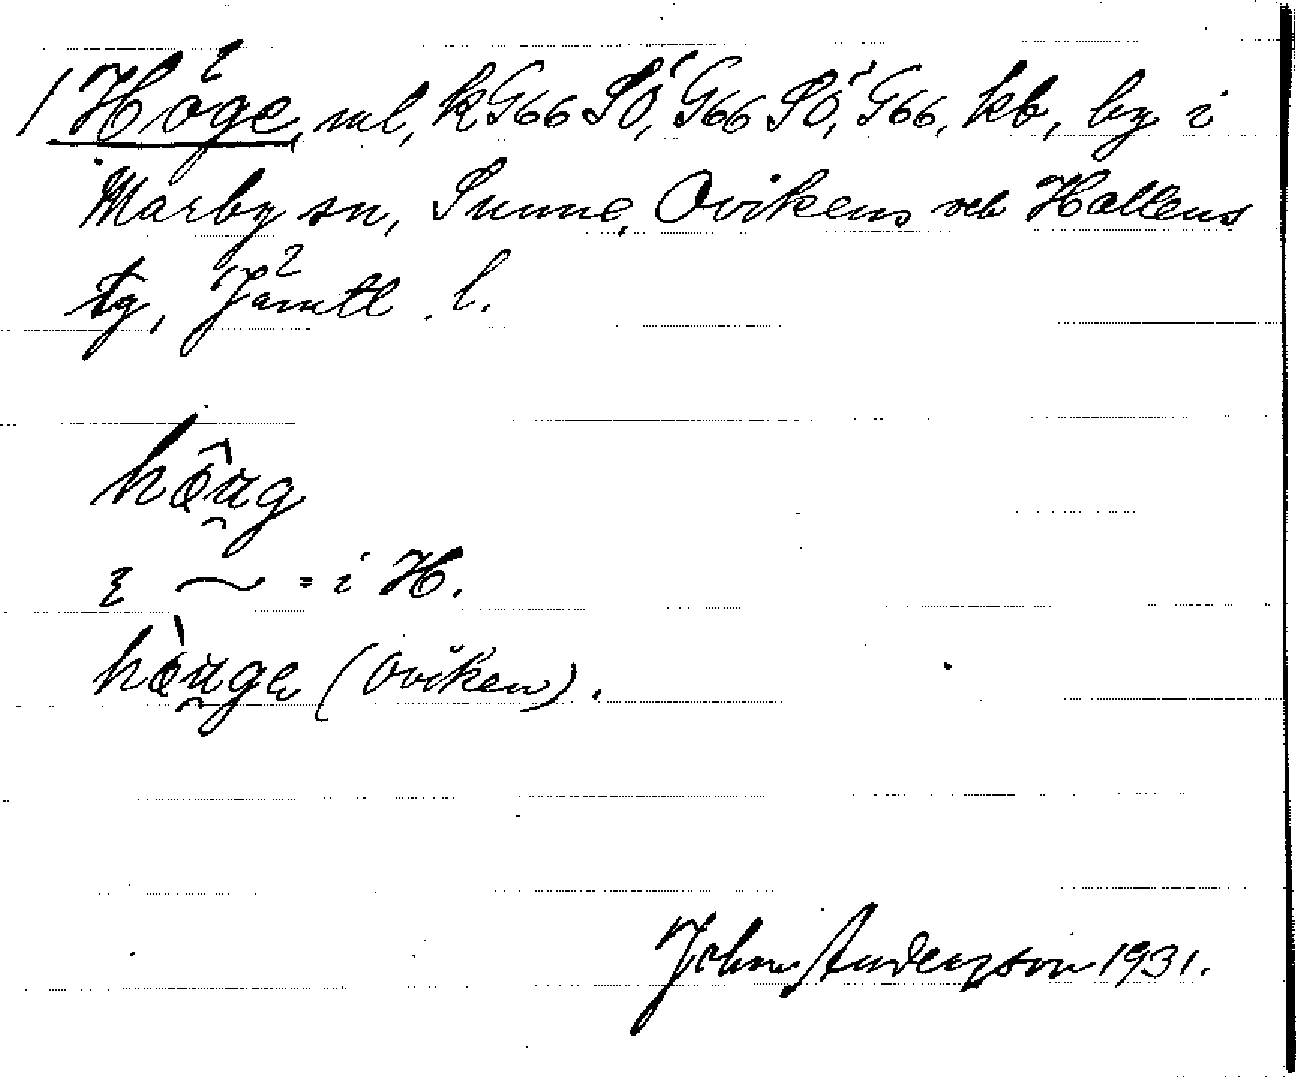 / Höge, ml, k G66 SÖ, G66 SÖ, G66, kb, by i
Marby sn, Sunne, Ovikens och Hallens
tg, Jämtl. l.
hôu̯g
ı ~ = i H.
hòu̯ge (Oviken).
John Anderson 1931.